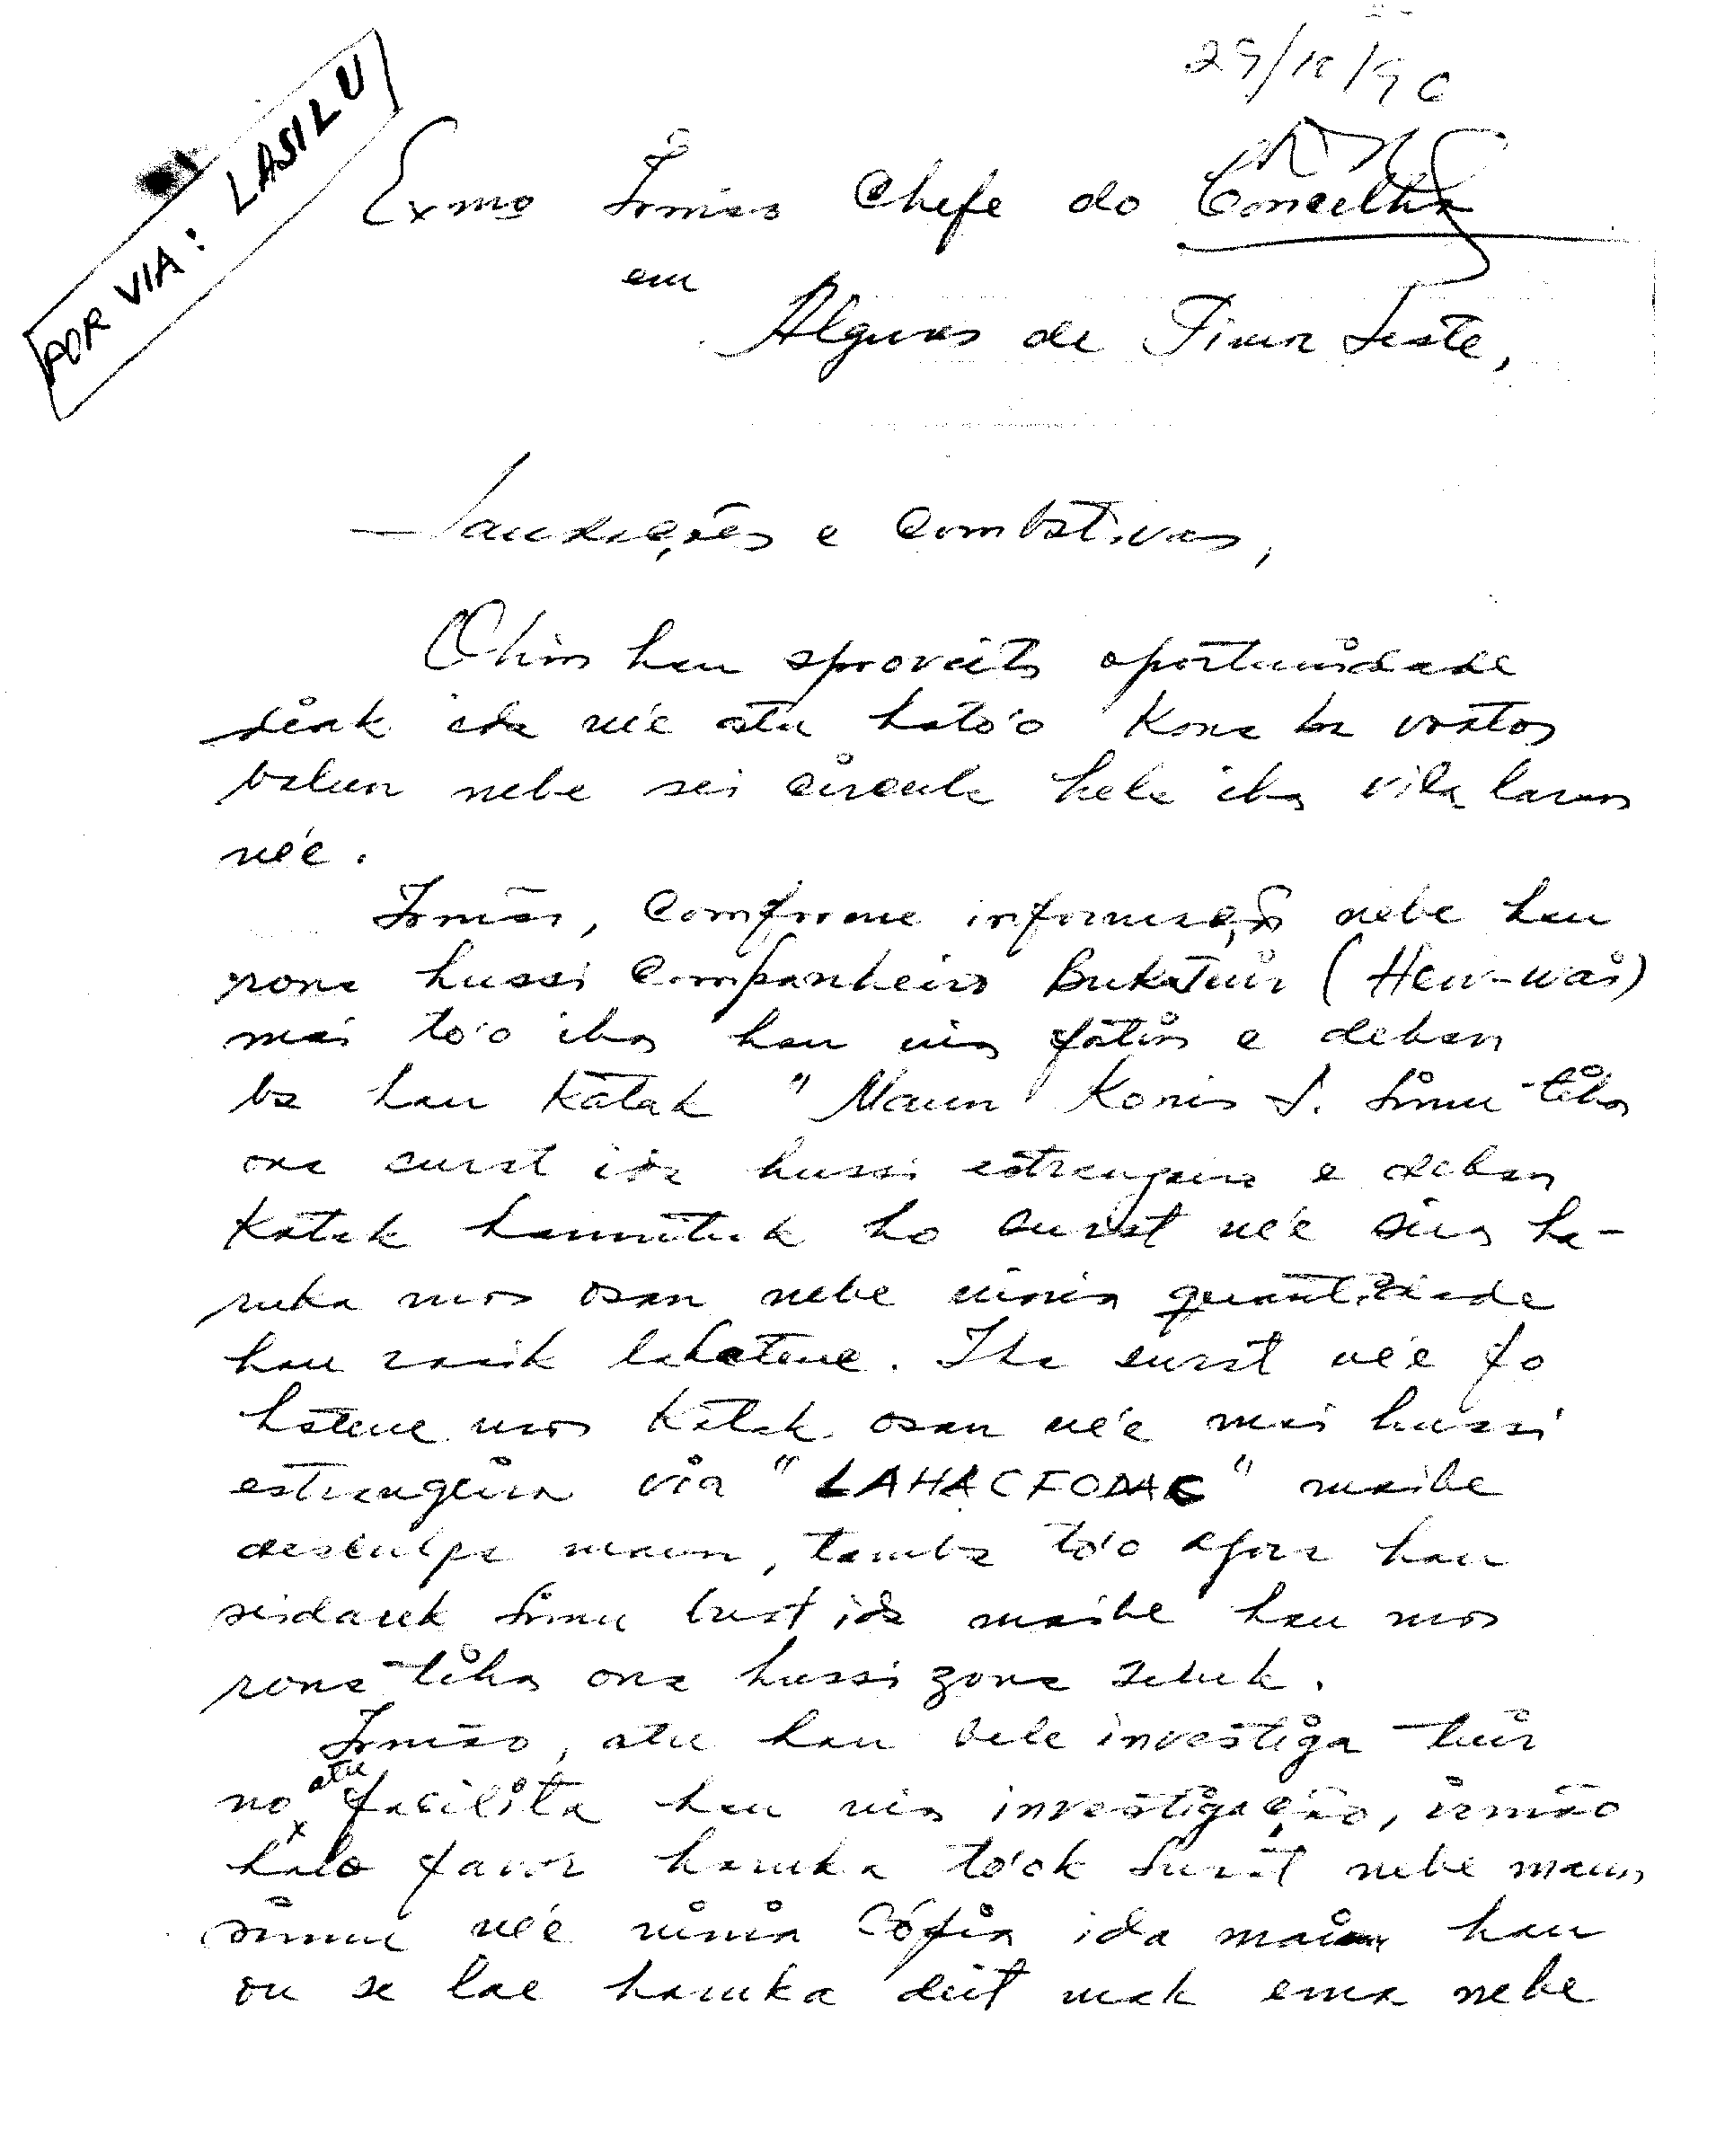 29/10/90
POR VIA: LASILU
Exmo Irmão Chefe do Concelho
em
Algures de Timor Leste,
Saudações e Combativas,
Ohin hau aproveita oportunidade
diak ida ne'e atu hato'o kona ba voatos
balun nebe sei circula hela iha vila laran
ne'e.
Irmão, Comforme informação nebe hau
rona hussi Companheiro Bukatuir (Hew-wai)
mai to'o iha hau nia fatin e dehan
ba hau katak "Maun Konis S. Simu tiha
ona surat ida hussi estrangeiro e dehan
katak hamutuk ho surat ne'e sira ha-
ruka mos osan nebe ninia quantidade
hau rasik lahatene. Iha surat ne'e fo
hatene mos katak osan ne'e mai hussi
estrangeiro via "LAHACFODAC" maibe
desculpa maun, tamba to'o agora hau
seidauk simu buat ida maibe hau mos
rona tiha ona hussi zona seluk.
Irmão, atu hau bele investiga tuir
no atu facilita hau nia investigação, irmão
halo favor haruka to'ok Surat nebe maun
simu ne'e ninia Cópia ida mai hau
ou se lae haruka deit mak ema nebe